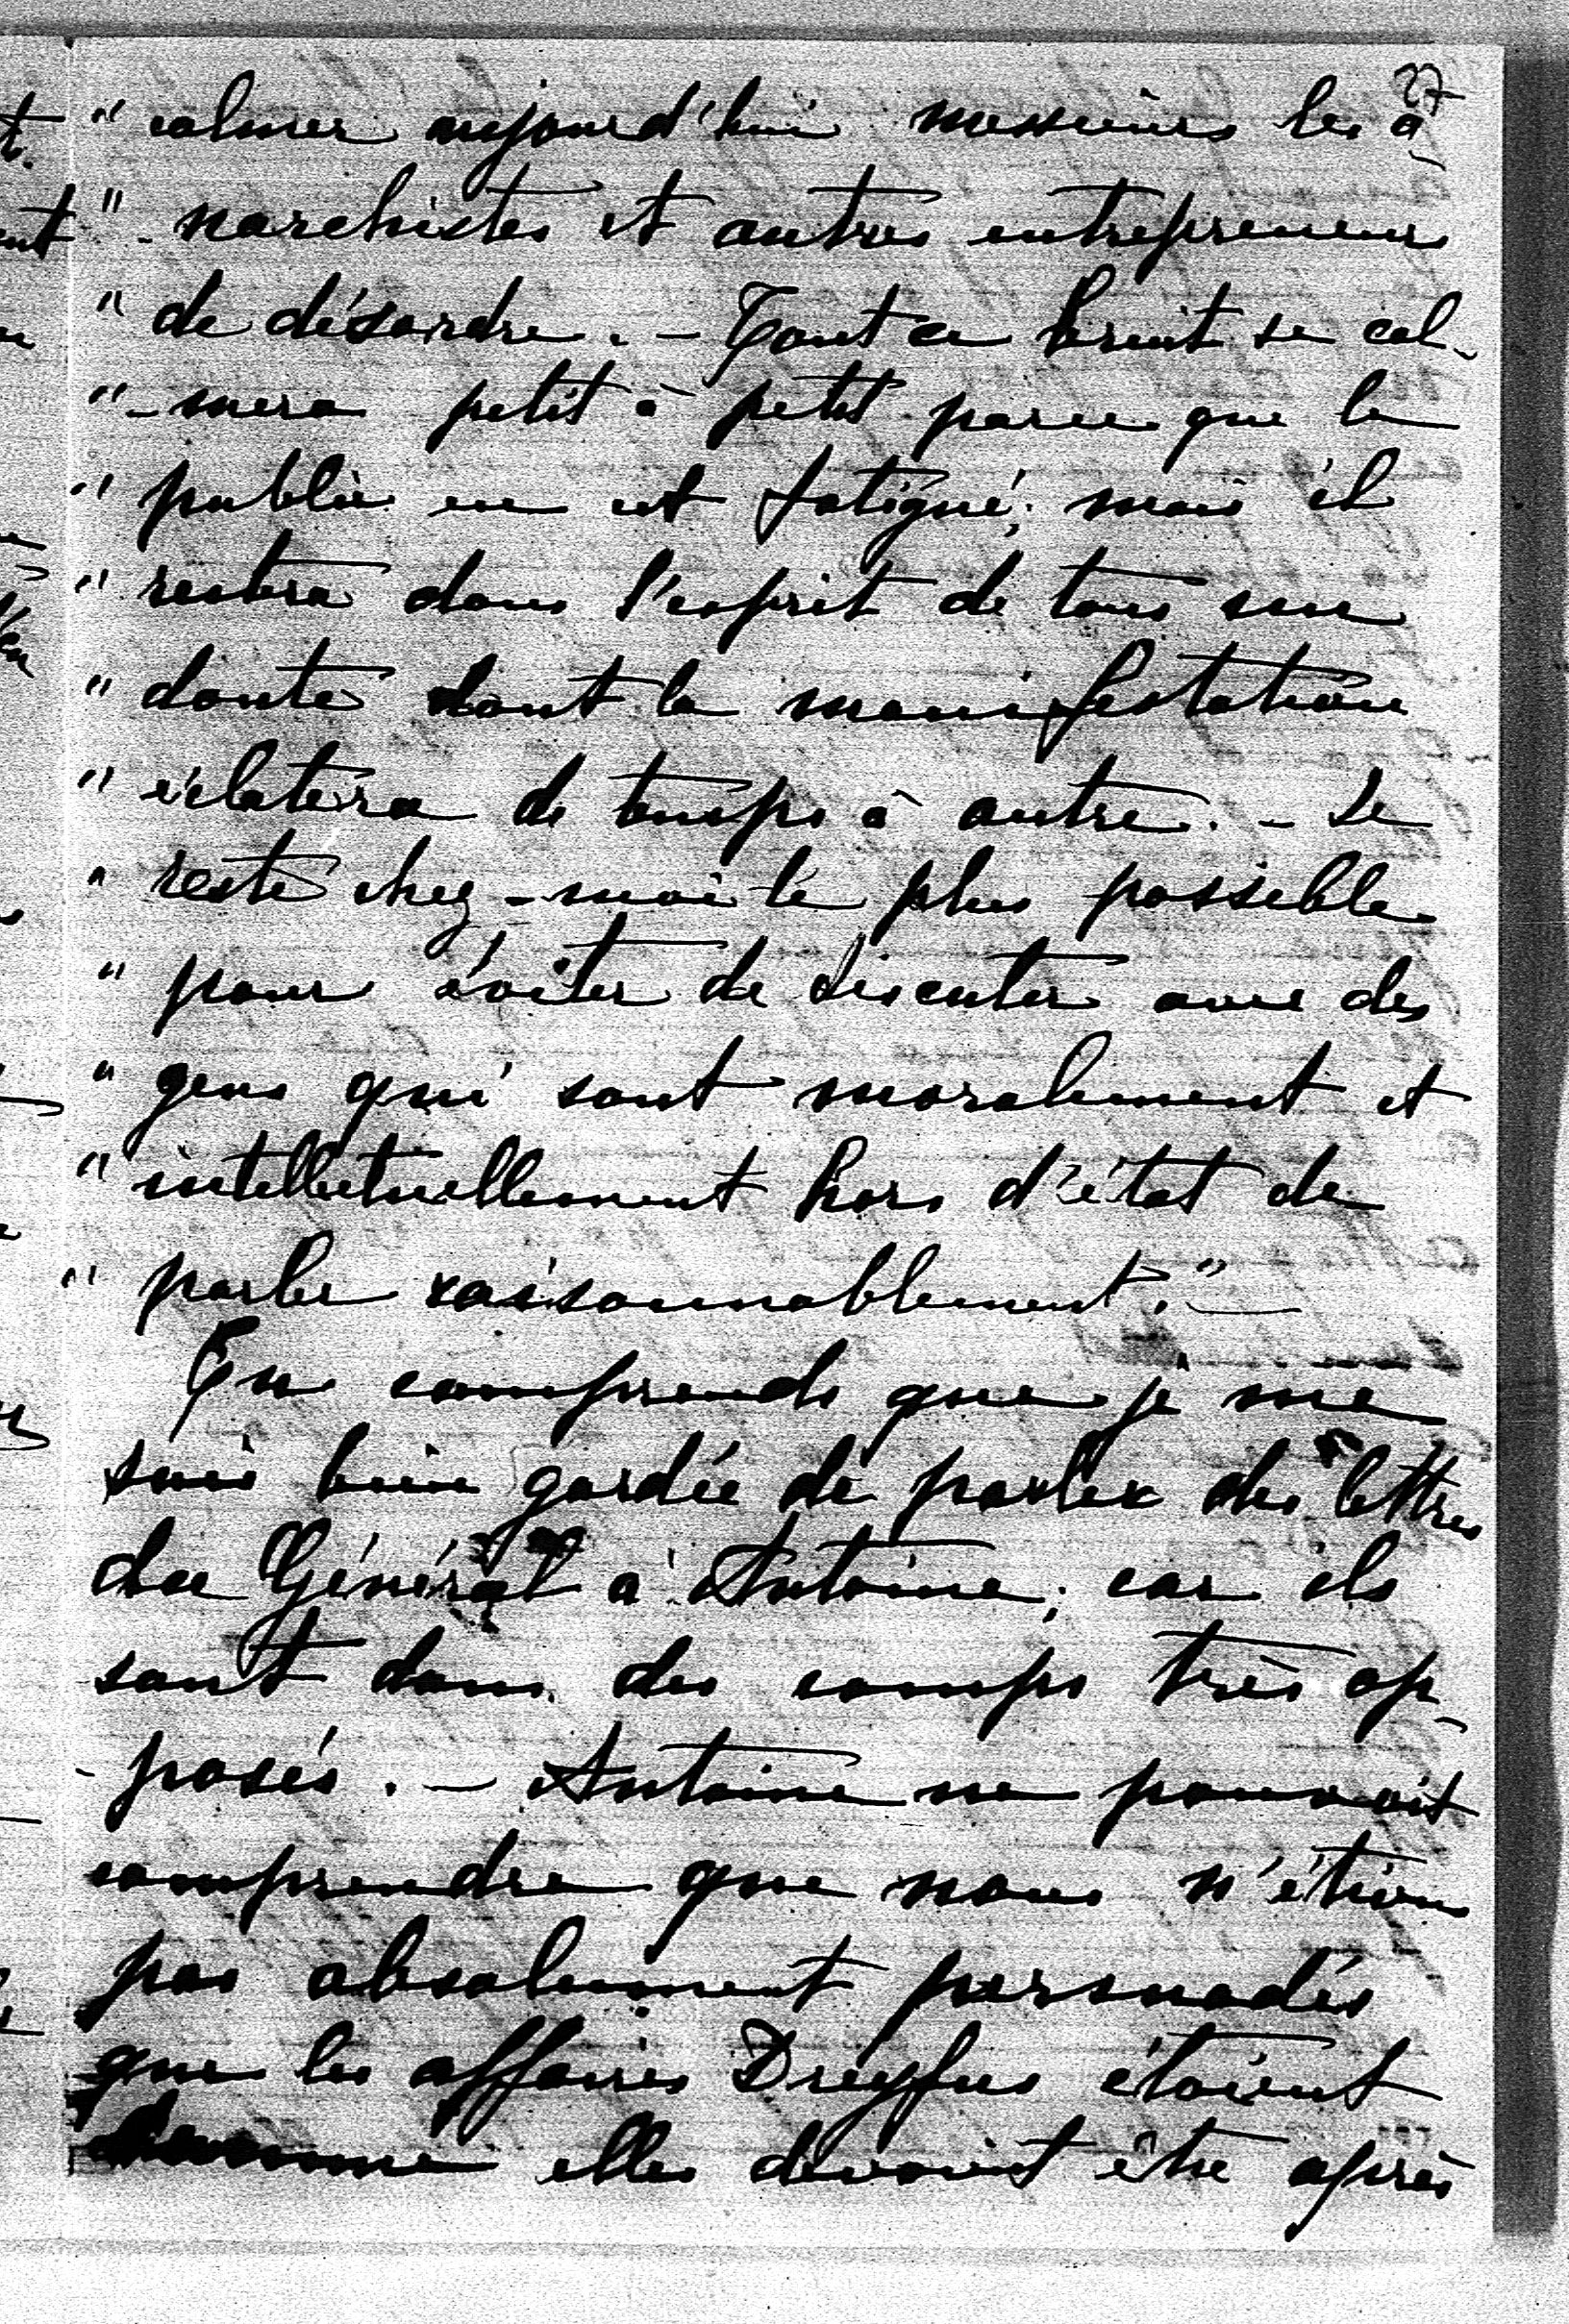 27
" calmer aujourd'hui messieurs les a-
" -narchistes et autres entrepreneurs
" de désordre. - Tout ce bruit se cal-
" -mera petit à petit parce que le
" public en est fatigué; mais il
" restera dans l'esprit de tous un
" doute dont la manifestation
" éclatera de temps à autre. - Je
" reste chez-moi le plus possible
" pour éviter de discuter avec des
" gens qui sont moralement et
" intellectuellement hors d'état de
" parler raisonnablement." —
Tu comprends que je me
suis bien gardée de parler des lettres
du Général à Antoine; car ils
sont dans des camps très op-
-posés. - Antoine ne pouvait
comprendre que nous n'étions
pas absolument persuadés
que les affaires Dreyfus étaient
comme elles devaient être après